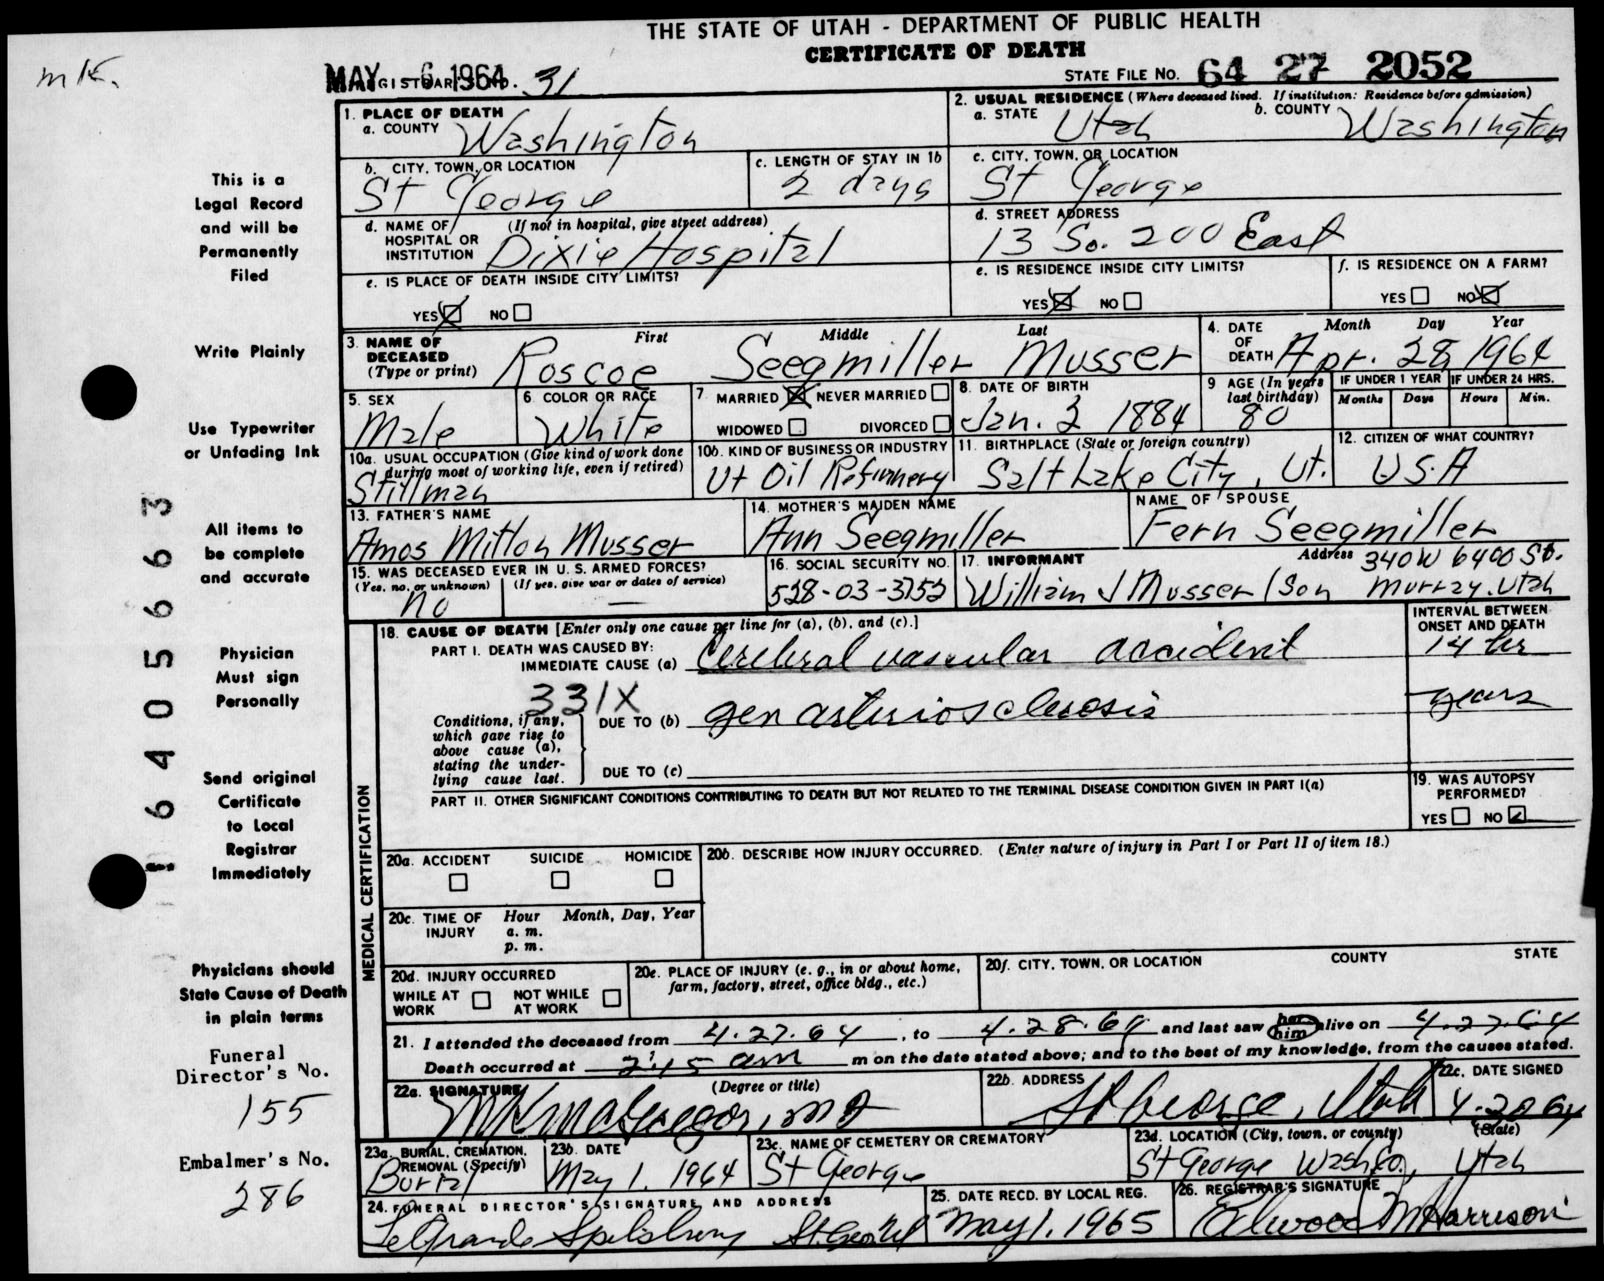 THE STATE OF UTAH - DEPARTMENT OF PUBLIC HEALTH
CERTIFICATE OF DEATH
mK.
MAY 6 1964 31
STATE FILE NO. 64 27 2052
1. PLACE OF DEATH
a. COUNTY Washington
2. USUAL RESIDENCE (Where deceased lived. If institution: Residence before admission)
a. STATE Utah b. COUNTY Washington
b. CITY, TOWN, OR LOCATION St George
c. LENGTH OF STAY IN 1b 2 days
c. CITY, TOWN, OR LOCATION St George
d. NAME OF HOSPITAL OR INSTITUTION (If not in hospital, give street address) Dixie Hospital
d. STREET ADDRESS 13 So. 200 East
e. IS PLACE OF DEATH INSIDE CITY LIMITS?
YES NO
e. IS RESIDENCE INSIDE CITY LIMITS?
YES NO
f. IS RESIDENCE ON A FARM?
YES NO
3. NAME OF DECEASED (Type or print) First Middle Last
Roscoe Seegmiller Musser
4. DATE OF DEATH Month Day Year
Apr. 28, 1964
5. SEX Male
6. COLOR OR RACE White
7 MARRIED NEVER MARRIED
WIDOWED DIVORCED
8. DATE OF BIRTH Jan. 3 1884
9 AGE (In years last birthday) 80
IF UNDER 1 YEAR Months Days
IF UNDER 24 HRS. Hours Min.
10a. USUAL OCCUPATION (Give kind of work done during most of working life, even if retired)
Stillman
10b. KIND OF BUSINESS OR INDUSTRY
Ut Oil Refinnery
11. BIRTHPLACE (State or foreign country)
Salt Lake City, Ut.
12. CITIZEN OF WHAT COUNTRY?
USA
13. FATHER'S NAME
Amos Milton Musser
14. MOTHER'S MAIDEN NAME
Ann Seegmiller
NAME OF SPOUSE
Fern Seegmiller
15. WAS DECEASED EVER IN U. S. ARMED FORCES?
(Yes, no, or unknown) (If yes, give war or dates of service)
no —
16. SOCIAL SECURITY NO.
528-03-3752
17. INFORMANT Address 340 W 6400 So.
William J Musser / Son Murray, Utah
18. CAUSE OF DEATH [Enter only one cause per line for (a), (b), and (c).]
INTERVAL BETWEEN ONSET AND DEATH
PART I. DEATH WAS CAUSED BY:
IMMEDIATE CAUSE (a) Cerebral vascular accident 14 hr
331X
Conditions, if any, which gave rise to above cause (a), stating the underlying cause last.
DUE TO (b) gen arteriosclerosis years
DUE TO (c)
PART II. OTHER SIGNIFICANT CONDITIONS CONTRIBUTING TO DEATH BUT NOT RELATED TO THE TERMINAL DISEASE CONDITION GIVEN IN PART I(a)
19. WAS AUTOPSY PERFORMED?
YES NO
MEDICAL CERTIFICATION
20a. ACCIDENT SUICIDE HOMICIDE
20b. DESCRIBE HOW INJURY OCCURRED. (Enter nature of injury in Part I or Part II of item 18.)
20c. TIME OF INJURY Hour Month, Day, Year
a. m.
p. m.
20d. INJURY OCCURRED
WHILE AT WORK NOT WHILE AT WORK
20e. PLACE OF INJURY (e. g., in or about home, farm, factory, street, office bldg., etc.)
20f. CITY, TOWN, OR LOCATION COUNTY STATE
21. I attended the deceased from 4.27.64, to 4.28.64 and last saw her him alive on 4.27.64
Death occurred at 2:15 am m on the date stated above; and to the best of my knowledge, from the causes stated.
22a. SIGNATURE (Degree or title)
MK McGregor, MD
22b. ADDRESS
St George, Utah
22c. DATE SIGNED
23a. BURIAL, CREMATION, REMOVAL (Specify)
Burial
23b. DATE
May 1, 1964
23c. NAME OF CEMETERY OR CREMATORY
St George
23d. LOCATION (City, town, or county) (State)
St George Wash. Co., Utah
24. FUNERAL DIRECTOR'S SIGNATURE AND ADDRESS
25. DATE RECD. BY LOCAL REG.
May 1, 1965
26. REGISTRAR'S SIGNATURE
Harrison
This is a
Legal Record
and will be
Permanently
Filed
Write Plainly
Use Typewriter
or Unfading Ink
All items to
be complete
and accurate
Physician
Must sign
Personally
Send original
Certificate
to Local
Registrar
Immediately
Physicians should
State Cause of Death
in plain terms
Funeral
Director's No.
155
Embalmer's No.
286
16405663